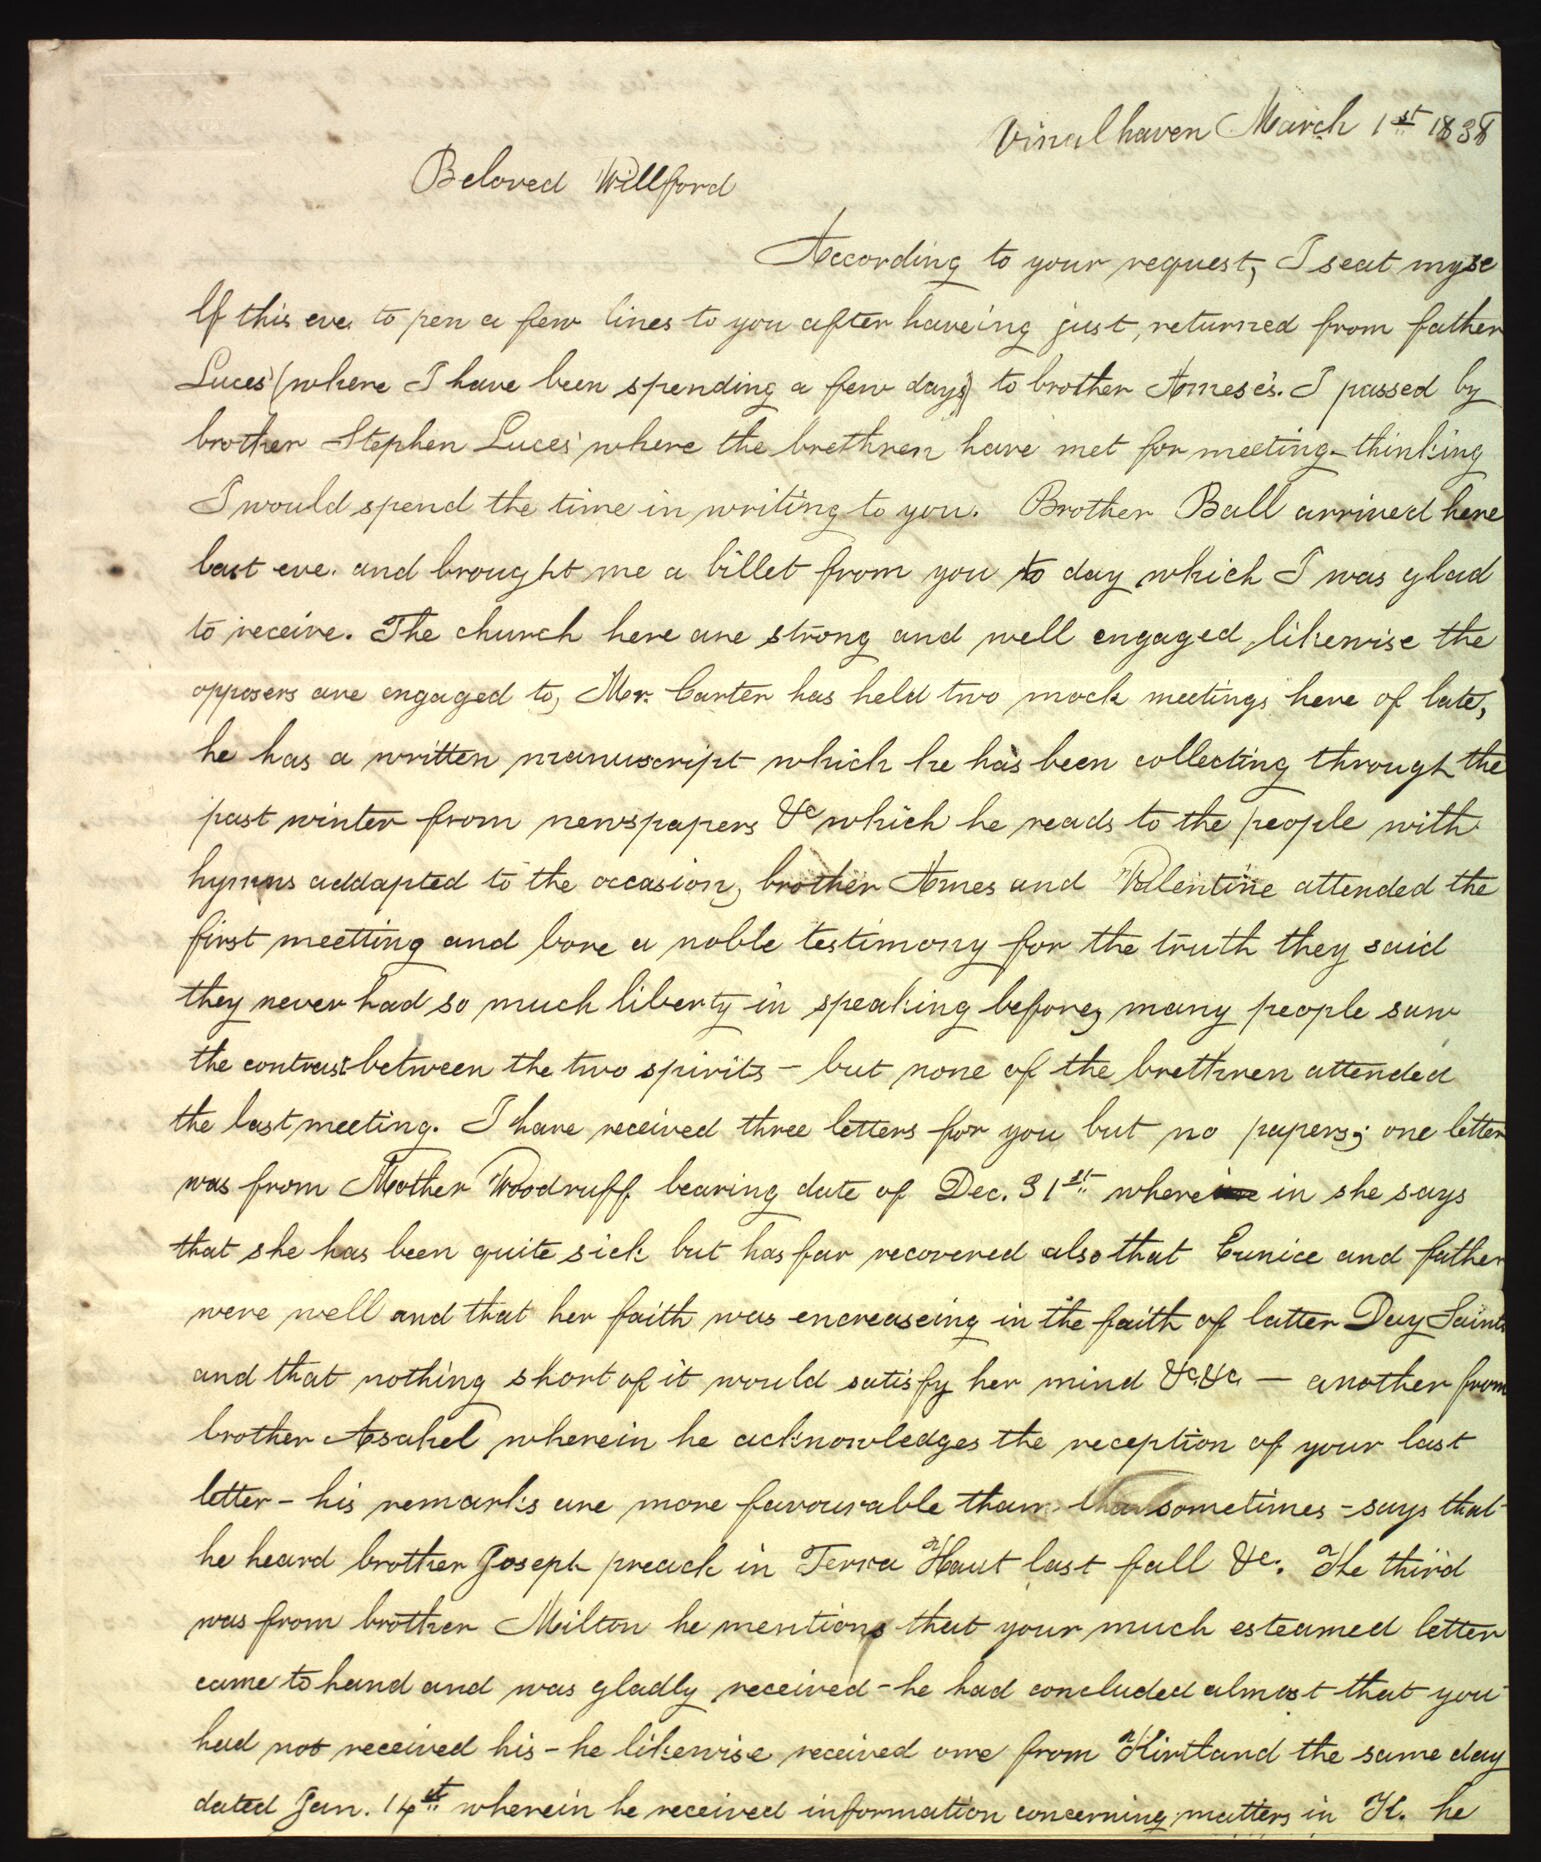 Vinalhaven March 1st 1838
Beloved Willford
According to your request, I seat myse
lf this eve. to pen a few lines to you after haveing just, returned from father
Luces' (where I have been spending a few days) to brother Ameses. I passed by
brother Stephen Luces' where the brethren have met for meeting - thinking
I would spend the time in writing to you. Brother Ball arrived here
last eve. and brought me a billet from you to day which I was glad
to receive. The church here are strong and well engaged, likewise the
opposers are engaged to, Mr. Carter has held two mock meetings here of late,
he has a written manuscript which he has been collecting through the
past winter from newspapers &c which he reads to the people with
hymns addapted to the occasion, brother Ames and Valentine attended the
first meetting and bore a noble testimony for the truth they said
they never had so much liberty in speaking before, many people saw
the contrast between the two spirits - but none of the brethren attended
the last meeting. I have received three letters for you but no papers; one letter
was from Mother Woodruff bearing date of Dec. 31st where in she says
that she has been quite sick but has far recovered also that Eunice and father
were well and that her faith was encreaseing in the faith of latter Day Saints
and that nothing short of it would satisfy her mind &c &c. — another from
brother Asahel wherein he acknowledges the reception of your last
letter - his remarks are more favourable than sometimes - says that
he heard brother Joseph preach in Terra Haut last fall &c. The third
was from brother Milton he mentions that your much esteamed letter
came to hand and was gladly received - he had concluded almost that you
had not received his - he likewise received one from Kirtland the same day
dated Jan. 14st wherein he received information concerning matters in K. he